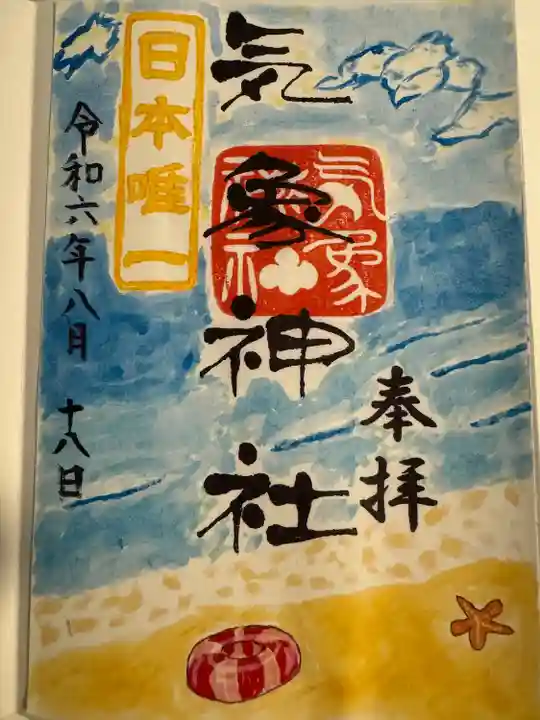 奉拝
気象神社
気象
神社
日本唯一
令和六年八月 十八日